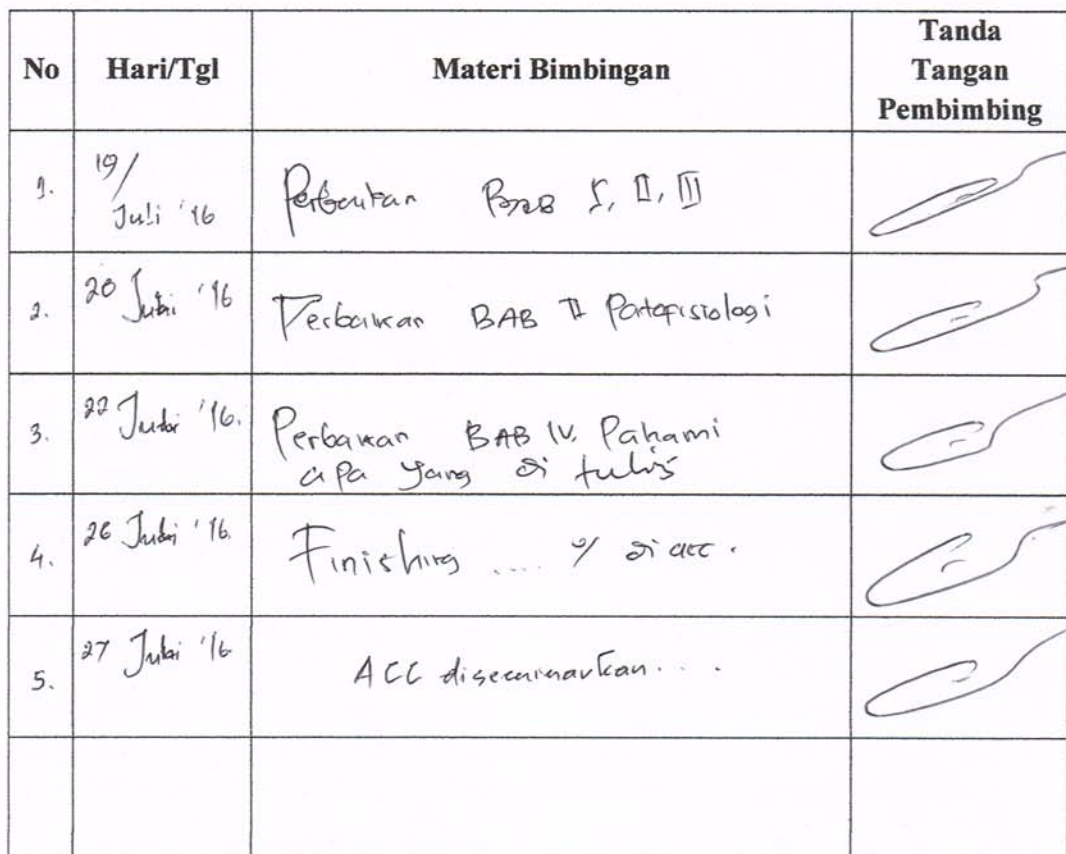 No Hari/Tgl Materi Bimbingan Tanda Tangan Pembimbing
1. 19/ Juli '16 Perbaikan BAB I, II, III
2. 20 Juli '16 Perbaikan BAB II Patofisiologi
3. 22 Juli '16. Perbaikan BAB IV. Pahami
apa yang di tulis
4. 26 Juli '16. Finishing .... u/ di acc.
5. 27 Juli '16 ACC diseminarkan...